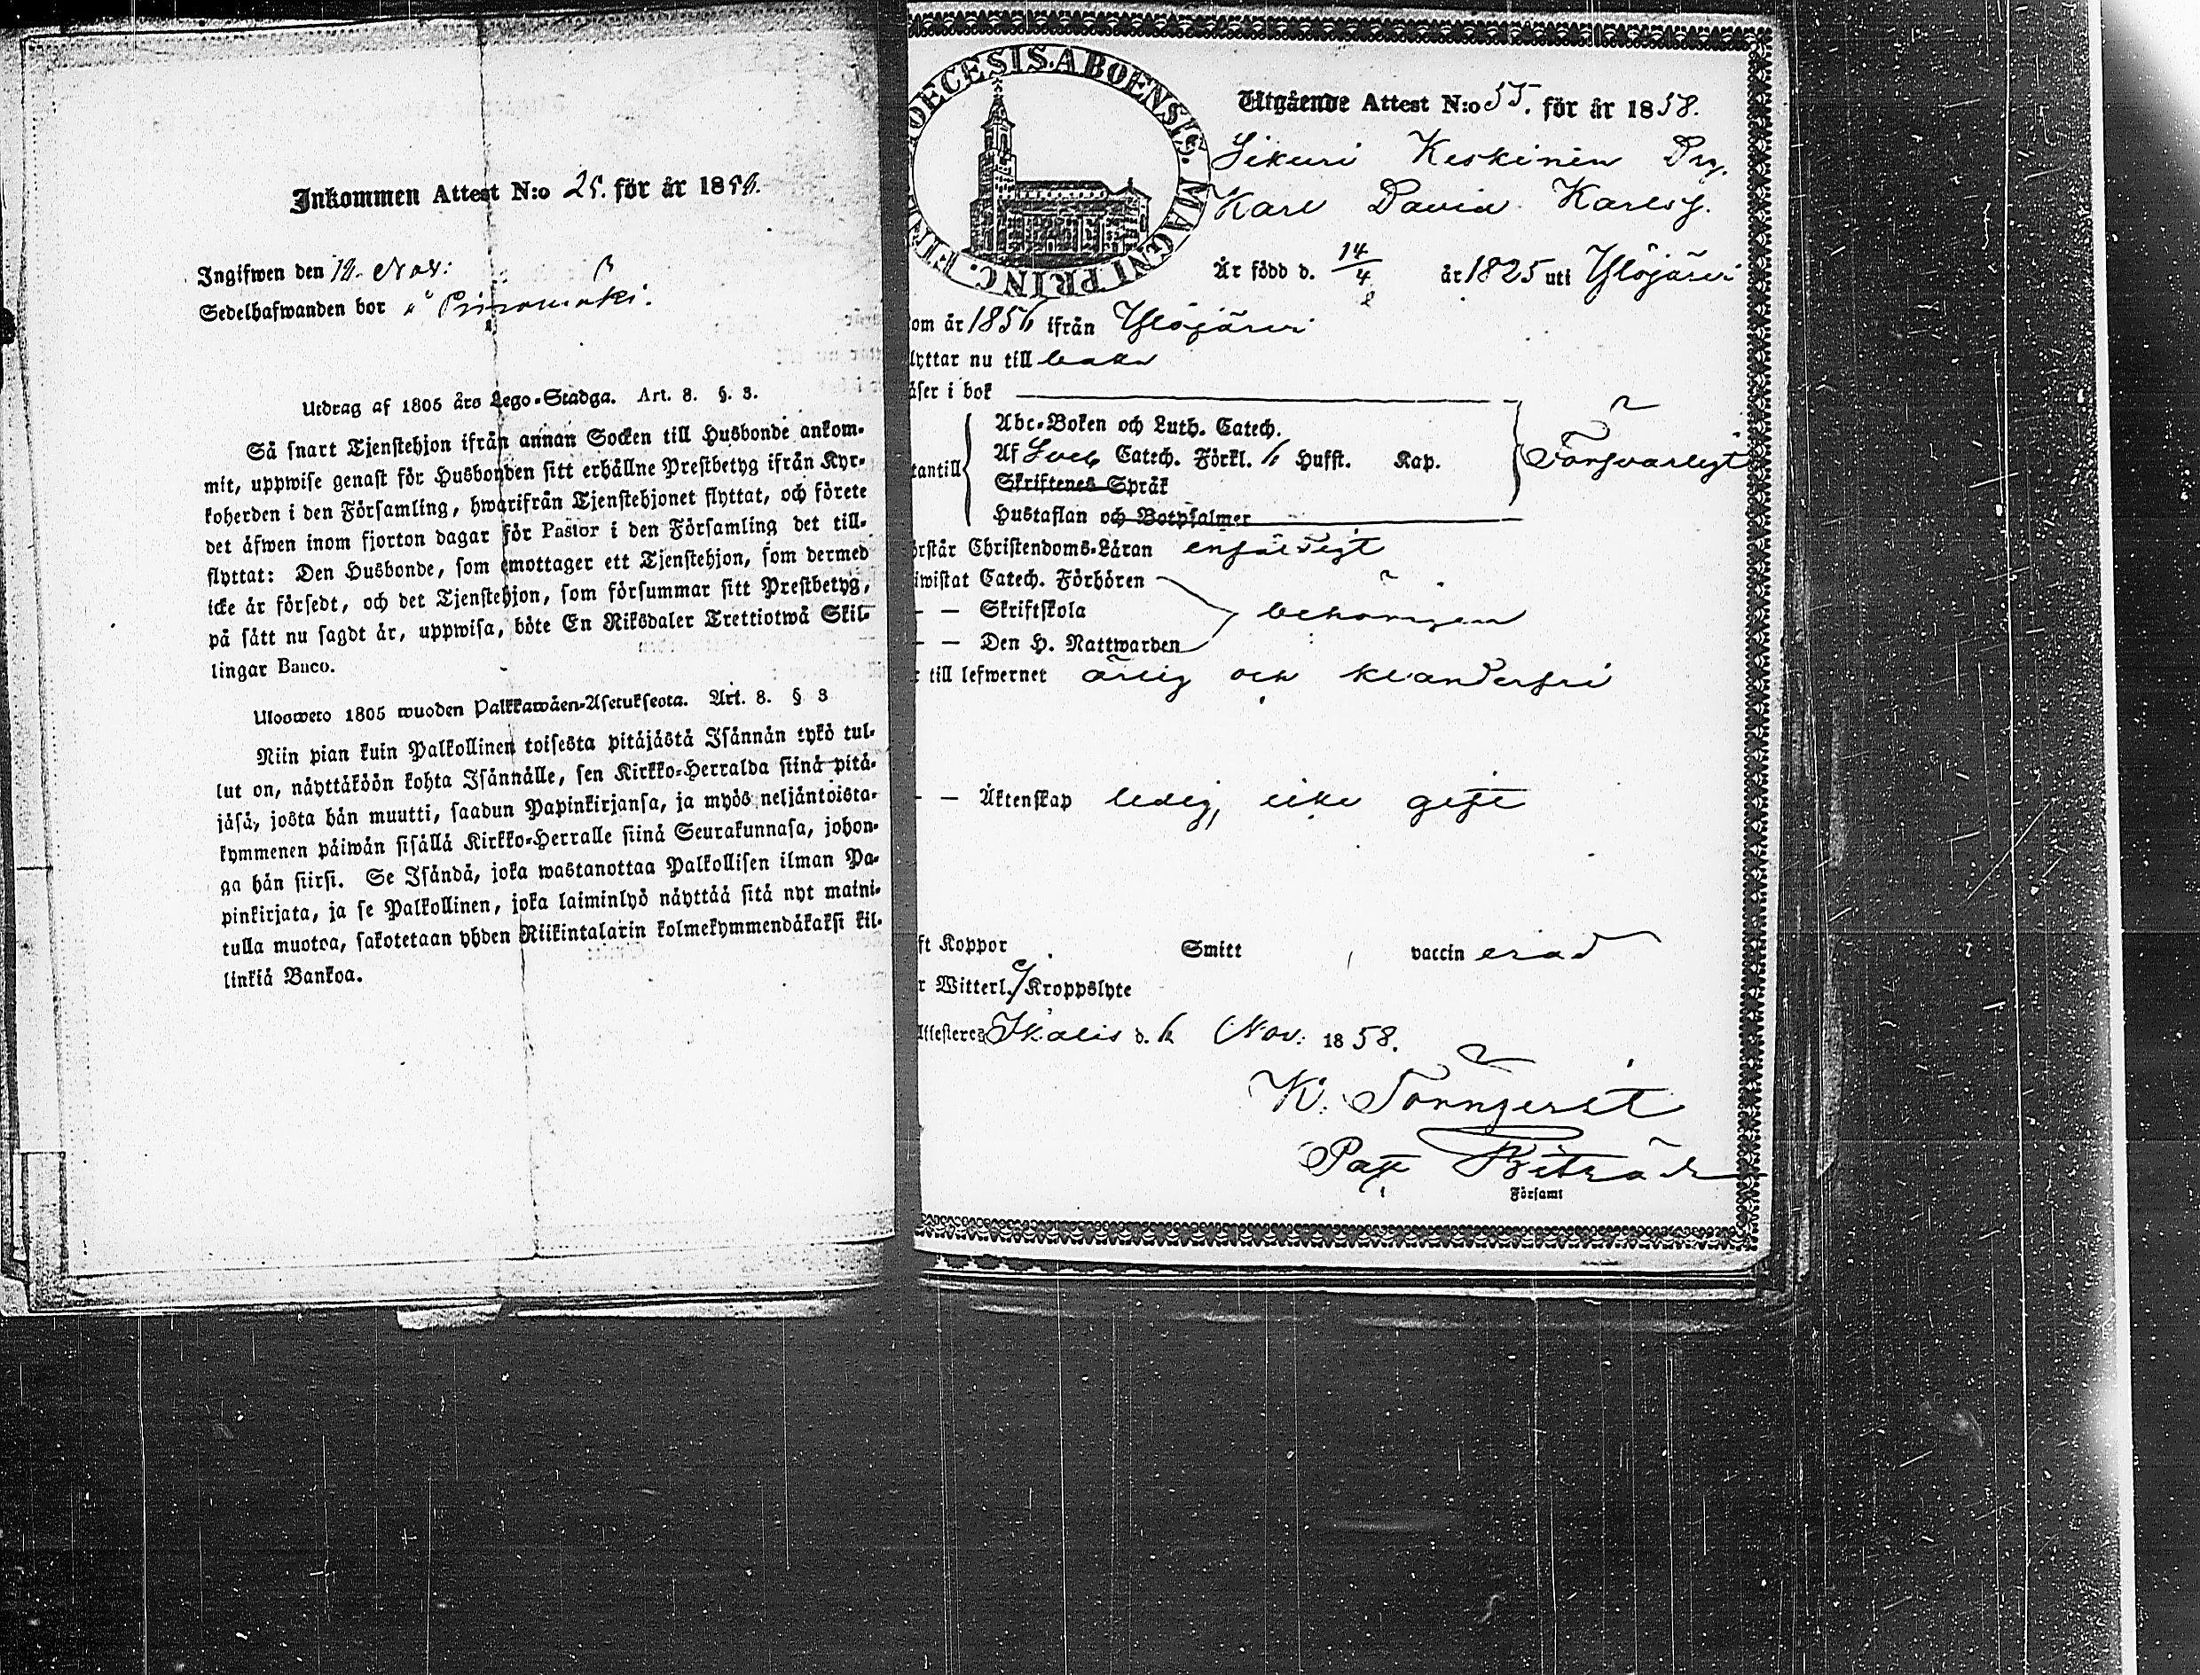 Inkommen Attest N:o 25. för år 1858.
Ingifwen den 12. Nov:
Sedelhafwanden bor
Utdrag af 1805 års Lego-Stadga. Art. 8. §. 3.
Så snart Tjenstehjon ifrån annan Socken till Husbonde ankom-
mit, uppwise genast för Husbonden sitt erhållne Prestbetyg ifrån Kyr-
koherden i den Församling, hwarifrån Tjenstehjonet flyttat, och förete
det äfwen inom fjorton dagar för Pastor i den Församling det till-
flyttat: Den Husbonde, som emottager ett Tjenstehjon, som dermed
icke är försedt, och det Tjenstehjon, som försummar sitt Prestbetyg,
på sätt nu sagdt är, uppwisa, böte En Riksdaler Trettiotwå Skil-
lingar Banco.
Ulosweto 1805 wuoden Palkkawäen-Asetuksesta. Art. 8. § 3
Niin pian kuin Palkollinen toisesta pitäjästä Isännän tykö tul-
lut on, näyttäköön kohta Isännälle, sen Kirkko-Herralda siinä pitä-
jäsä, josta hän muutti, saadun Papinkirjansa, ja myös neljäntoista-
kymmenen päiwän sisällä Kirkko-Herralle siinä Seurakunnasa, johon-
ga hän siirsi. Se Isändä, joka wastanottaa Palkollisen ilman Pa-
pinkirjata, ja se Palkollinen, joka laiminlyö näyttää sitä nyt maini-
tulla muotoa, sakotetaan yhden Riikintalarin kolmekymmendäkaksi kil-
linkiä Bankoa.
OECESIS.ABOENSIS.MAGNI PRINC.FIN
Utgående Attest N:o 55. för år 1858.
Sikuri Keskinen Drg.
Karl David Karlsf.
Är född d. 14/4 år 1825 uti Ylöjärvi
om år 1856 ifrån Ylöjärvi
lyttar nu till baka
äser i bok
Abc-Boken och Luth. Catech.
Af Sveb Catech. Förkl. 6 Hufst. Kap. Försvarligt
tantill
Skriftenes Språk
Hustaflan och Botpsalmer
rstår Christendoms-Läran enfäldigt
iwistat Catech. Förhören
— — Skriftskola behörigen
— — Den H. Nattwarden
r till lefwernet ärlig och klanderfri
— — Äktenskap ledig, icke gift
ft Koppor Smitt vaccin erad
r Witterl. Kroppslyte
Attesteres Ikalis d. 6 Nov: 1858.
K.
Past Biträd
Församl